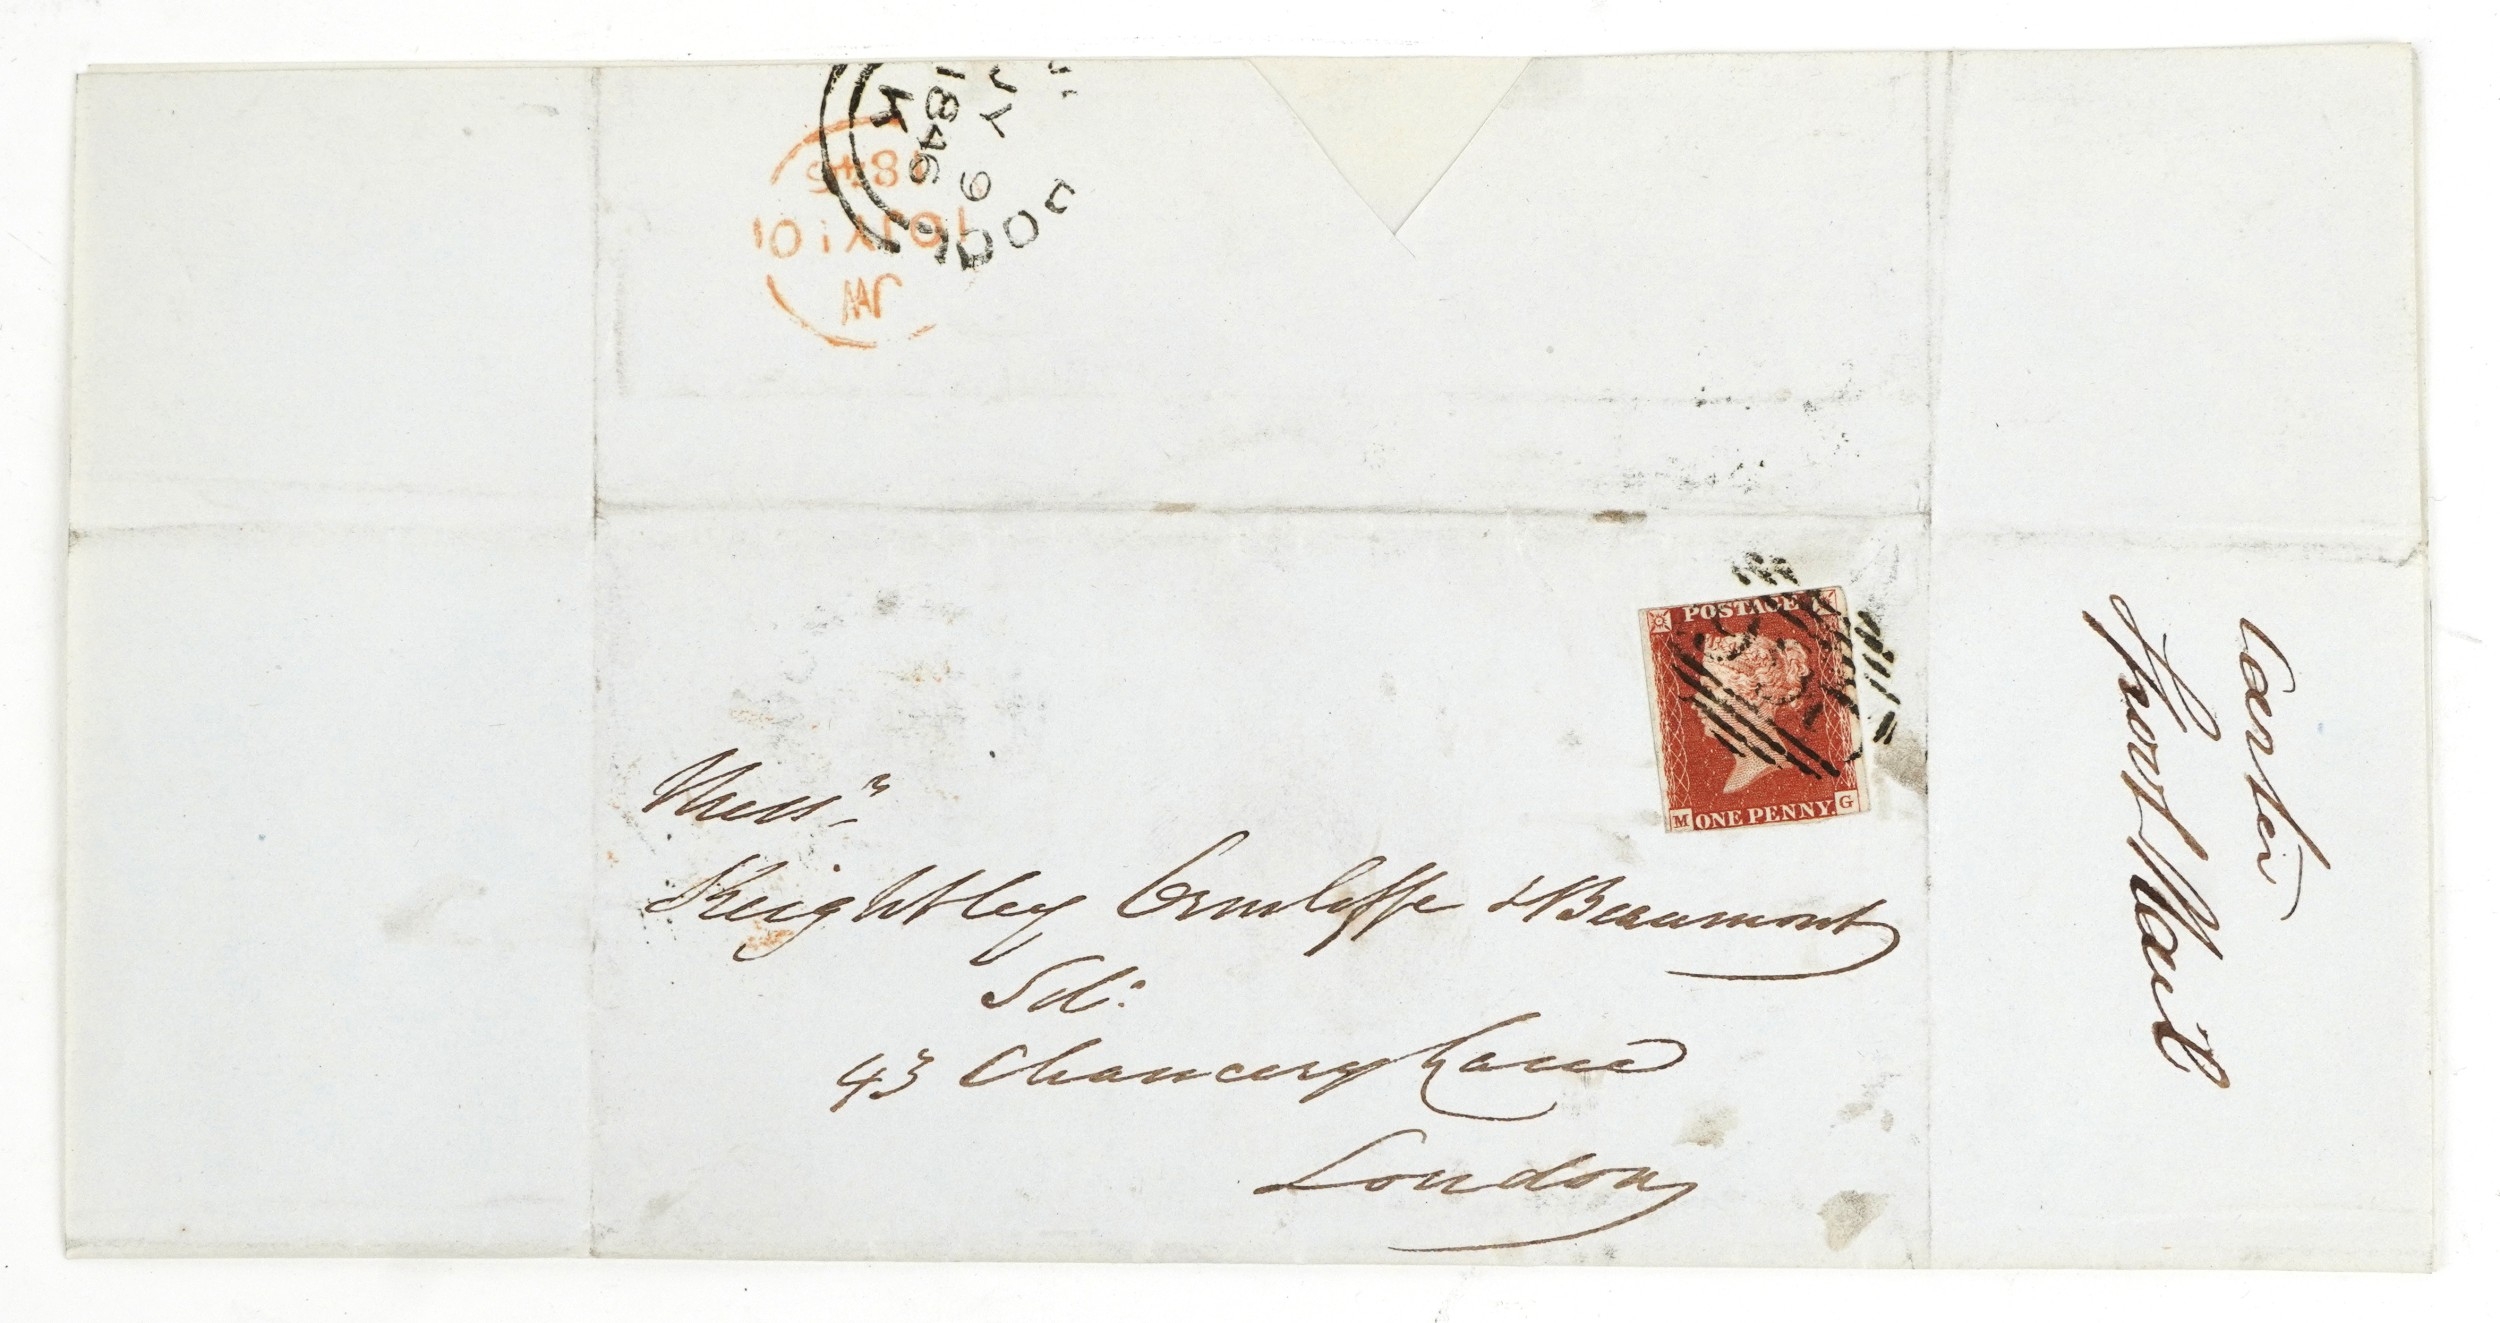 JY 9
1846
K
1846
10 JY 10
JW
POSTAGE
M ONE PENNY. G
Mess.rs
Keightley Cunliffe & Beaumont
Sol:
43 Chancery Lane
London
Short Mail